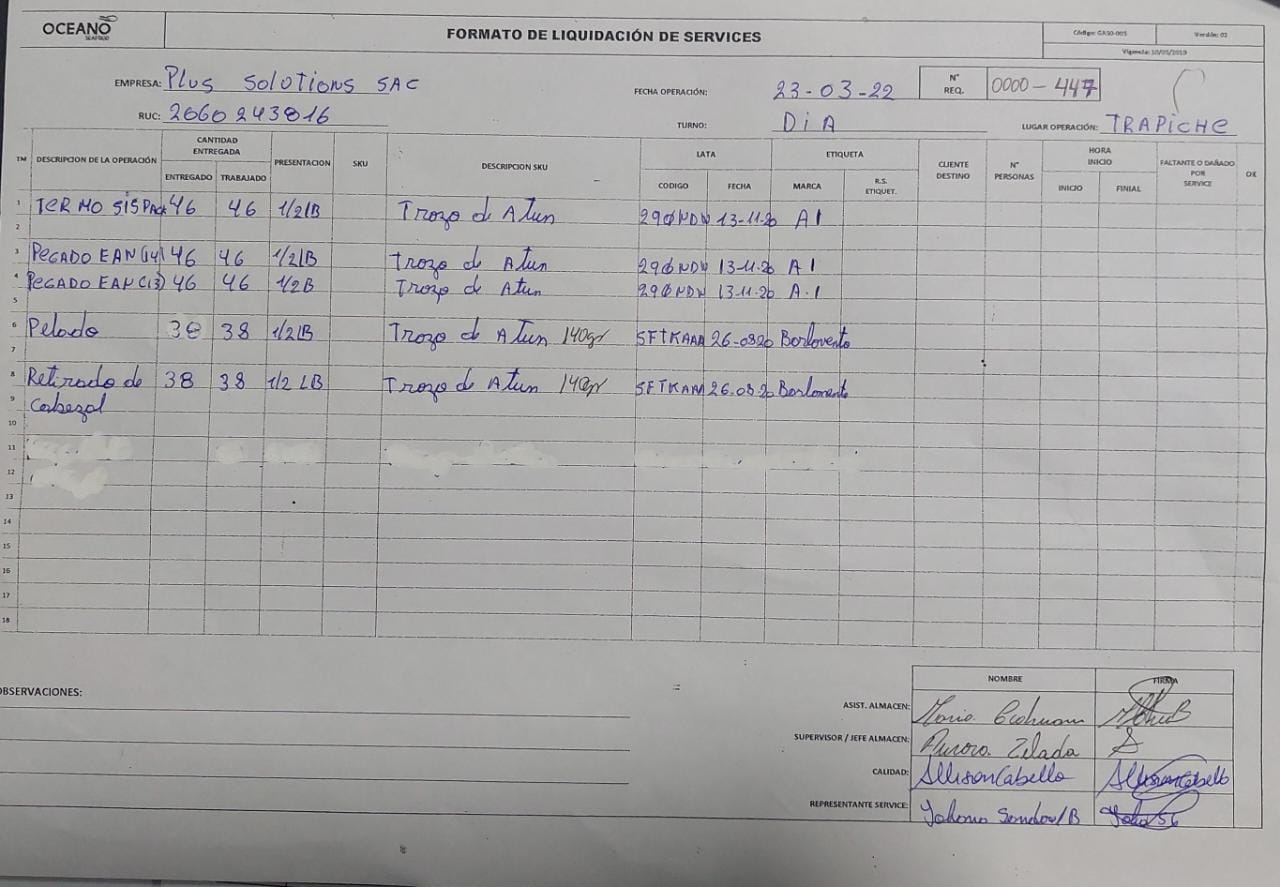 OCEANO
SEAFOOD
FORMATO DE LIQUIDACIÓN DE SERVICES
Código: GA30-005 Versión: 02
Vigencia: 10/05/2019
EMPRESA: Plus Solotions SAC
FECHA OPERACIÓN: 23-03-22
N° REQ. 0000-447
RUC: 20602243816
TURNO: DiA
LUGAR OPERACIÓN: TRAPICHE
TM DESCRIPCION DE LA OPERACIÓN CANTIDAD ENTREGADA PRESENTACION SKU DESCRIPCION SKU LATA ETIQUETA CLIENTE DESTINO N° PERSONAS HORA INICIO FALTANTE O DAÑADO POR SERVICE OK
ENTREGADO TRABAJADO CODIGO FECHA MARCA R.S. ETIQUET. INICIO FINIAL
1 TERMO SISPACK 46 46 1/2lB Trozo de Atun 290NDW 13-11-20 A1
2
3 PEGADO EAN(14) 46 46 1/2lB Trozo de Atun 290NDW 13-11-20 A1
4 PEGADO EAN(13) 46 46 1/2B Trozo de Atun 290NDW 13-11-20 A.1
5
6 Pelado 38 38 1/2lB Trozo de Atun 140gr SFTKAAA 26-0820 Barlovento
7
8 Retirado de 38 38 1/2 LB Trozo de Atun 140gr SFTKAAA 26.08.20 Barlovento
9 Cabezal
10
11
12
13
14
15
16
17
18
OBSERVACIONES:
NOMBRE FIRMA
ASIST. ALMACEN: Mario
SUPERVISOR / JEFE ALMACEN: Aurora Zelada
CALIDAD: Allison Cabello Allison Cabello
REPRESENTANTE SERVICE: